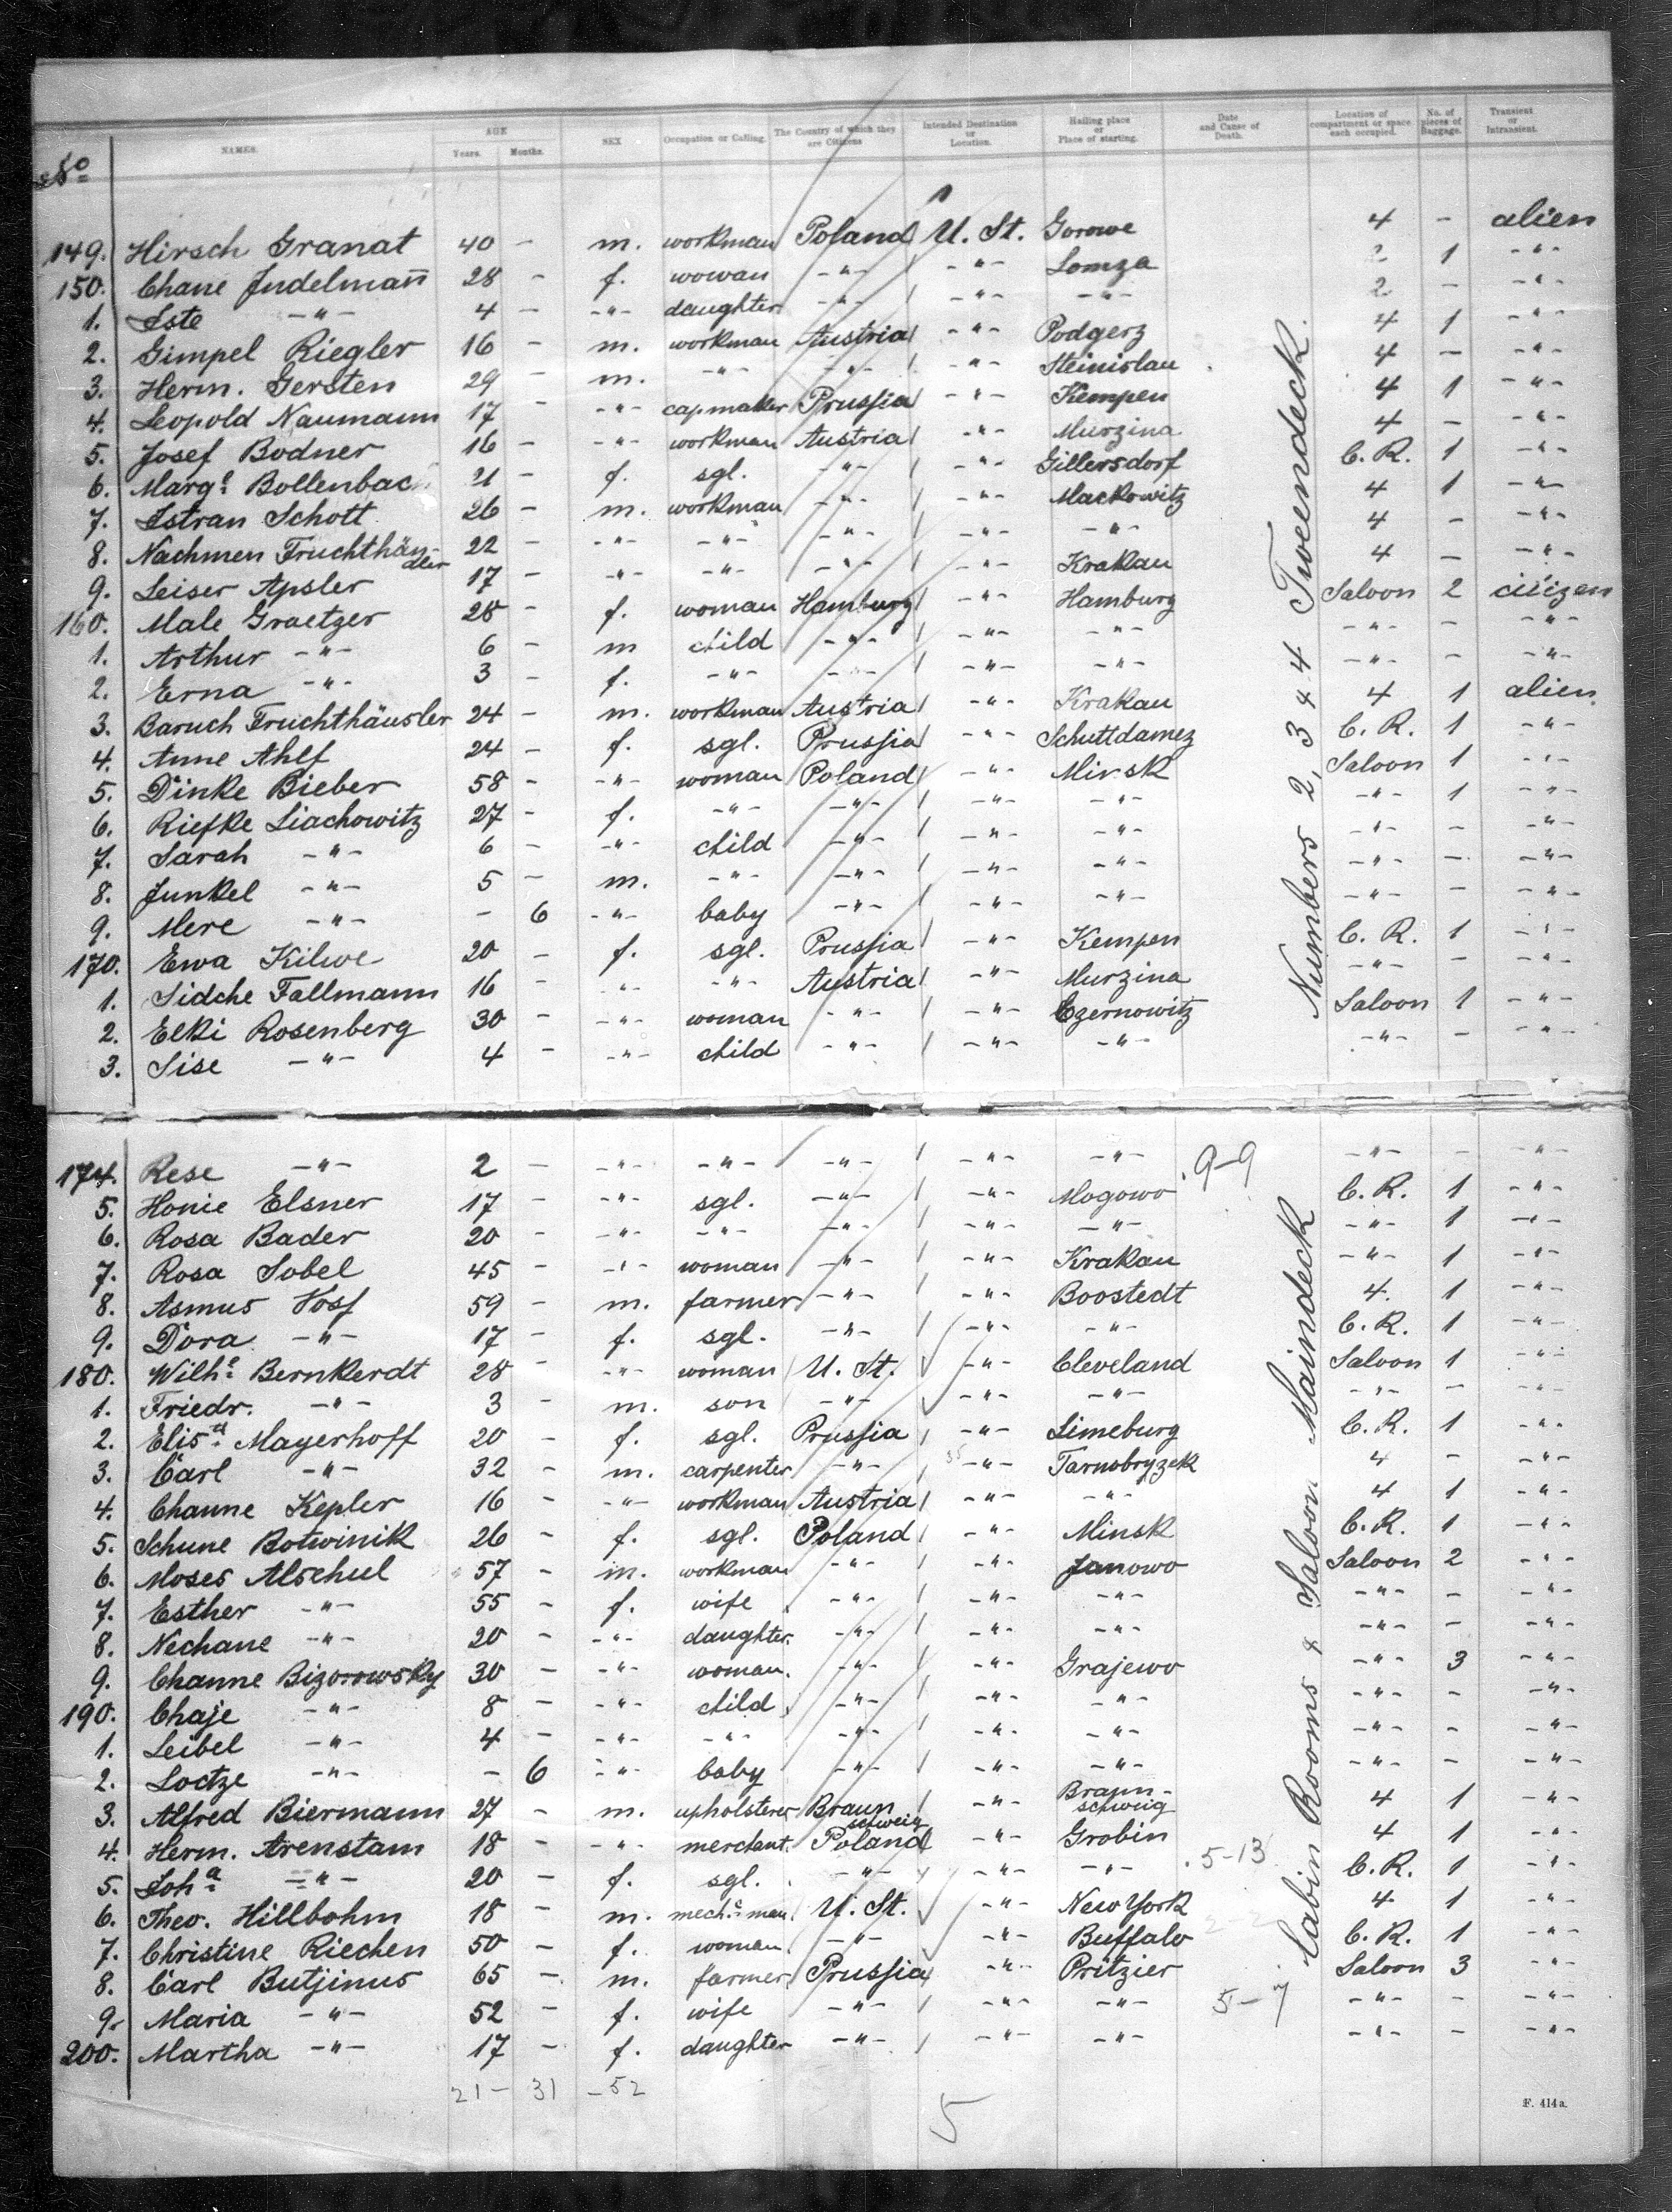 NAMES. AGE Years. Months. SEX Occupation or Calling. The Country of which they are Citizens Intended Destination or Location. Hailing place or Place of starting. Date and Cause of Death. Location of compartment or space each occupied. No. of pieces of Baggage. Transient or Intransient.
No
149. Hirsch Granat 40 - m. workman Poland U. St. Gorowe 4 - alien
150. Chane Judelmañ 28 - f. wowan -"- -"- Lomza 2 1 -"-
1. Iste -"- 4 - -"- daughter -"- -"- -"- 2 - -"-
2. Gimpel Riegler 16 - m. workman Austria -"- Podgerz 4 1 -"-
3. Herm. Gersten 29 - m. -"- -"- -"- Steinislau 4 - -"-
4. Leopold Naumann 17 - -"- capmaker Prussia -"- Kempen 4 1 -"-
5. Josef Bodner 16 - -"- workman Austria -"- Murzina 4 - -"-
6. Marge Bollenbach 21 - f. sgl. -"- -"- Gillersdorf C. R. 1 -"-
7. Istran Schott 26 - m. workman -"- -"- Mackowitz 4 1 -"-
8. Nachmen Fruchthän-dler 22 - -"- -"- -"- -"- -"- 4 - -"-
9. Leiser Apsler 17 - -"- -"- -"- -"- Krakau 4 - -"-
160. Male Graetzer 28 - f. woman Hamburg -"- Hamburg Saloon 2 citizen
1. Arthur -"- 6 - m child -"- -"- -"- -"- - -"-
2. Erna -"- 3 - f. -"- -"- -"- -"- -"- - -"-
3. Baruch Fruchthäusler 24 - m. workman Austria -"- Krakau 4 1 alien
4. Anne Ahlf 24 - f. sgl. Prussia -"- Schuttdamez C. R. 1 -"-
5. Dinke Bieber 58 - -"- woman Poland -"- Minsk Saloon 1 -"-
6. Riefke Liachowitz 27 - f. -"- -"- -"- -"- -"- 1 -"-
7. Sarah -"- 6 - -"- child -"- -"- -"- -"- - -"-
8. Junkel -"- 5 - m. -"- -"- -"- -"- -"- - -"-
9. Mere -"- - 6 -"- baby -"- -"- -"- -"- - -"-
170. Ewa Kilwe 20 - f. sgl. Prussia -"- Kempen C. R. 1 -"-
1. Sidche Fallmann 16 - -"- -"- Austria -"- Murzina -"- - -"-
2. Elki Rosenberg 30 - -"- woman -"- -"- Czernowitz Saloon 1 -"-
3. Sise -"- 4 - -"- child -"- -"- -"- -"- - -"-
Numbers 2, 3 & 4 Tweendeck.
174. Rese -"- 2 - -"- -"- -"- -"- -"- 9-9 -"- - -"-
5. Honie Elsner 17 - -"- sgl. -"- -"- Mogowo C. R. 1 -"-
6. Rosa Bader 20 - -"- -"- -"- -"- -"- -"- 1 -"-
7. Rosa Sobel 45 - -"- woman -"- -"- Krakau -"- 1 -"-
8. Asmus Voss 59 - m. farmer -"- -"- Boostedt 4. 1 -"-
9. Dora -"- 17 - f. sgl. -"- -"- -"- C. R. 1 -"-
180. Wilhe Bernkerdt 28 - -"- woman U. St. -"- Cleveland Saloon 1 -"-
1. Friedr. -"- 3 - m. son -"- -"- -"- -"- - -"-
2. Elisth Mayerhoff 20 - f. sgl. Prussia -"- Limeburg C. R. 1 -"-
3. Carl -"- 32 - m. carpenter -"- -"- Tarnobryzek 4 - -"-
4. Channe Kepler 16 - -"- workman Austria -"- -"- 4 1 -"-
5. Schune Botwinik 26 - f. sgl. Poland -"- Minsk C. R. 1 -"-
6. Moses Alschul 57 - m. workman -"- -"- Janowo Saloon 2 -"-
7. Esther -"- 55 - f. wife -"- -"- -"- -"- - -"-
8. Nechane -"- 20 - -"- daughter -"- -"- -"- -"- - -"-
9. Channe Bizorowsky 30 - -"- woman. -"- -"- Grajewo -"- 3 -"-
190. Chaje -"- 8 - -"- child -"- -"- -"- -"- - -"-
1. Leibel -"- 4 - -"- -"- -"- -"- -"- -"- - -"-
2. Loctze -"- - 6 -"- baby -"- -"- -"- -"- - -"-
3. Alfred Biermann 27 - m. upholsterer Braunschweig -"- Braun-schweig 4 1 -"-
4. Herm. Arenstam 18 - -"- merchant. Poland -"- Grobin 4 1 -"-
5. Joha -"- 20 - f. sgl. -"- -"- -"- 5-13 C. R. 1 -"-
6. Theo. Hillbohm 18 - m. mech. man. U. St. -"- New York 4 1 -"-
7. Christine Riechen 50 - f. woman. -"- -"- Buffalo C. R. 1 -"-
8. Carl Butjinus 65 - m. farmer Prussia -"- Pritzier Saloon 3 -"-
9. Maria -"- 52 - f. wife -"- -"- -"- 5-7 -"- - -"-
200. Martha -"- 17 - f. daughter -"- -"- -"- -"- - -"-
Cabin Rooms & Saloon Maindeck
21 - 31 - 52
5
F. 414a.